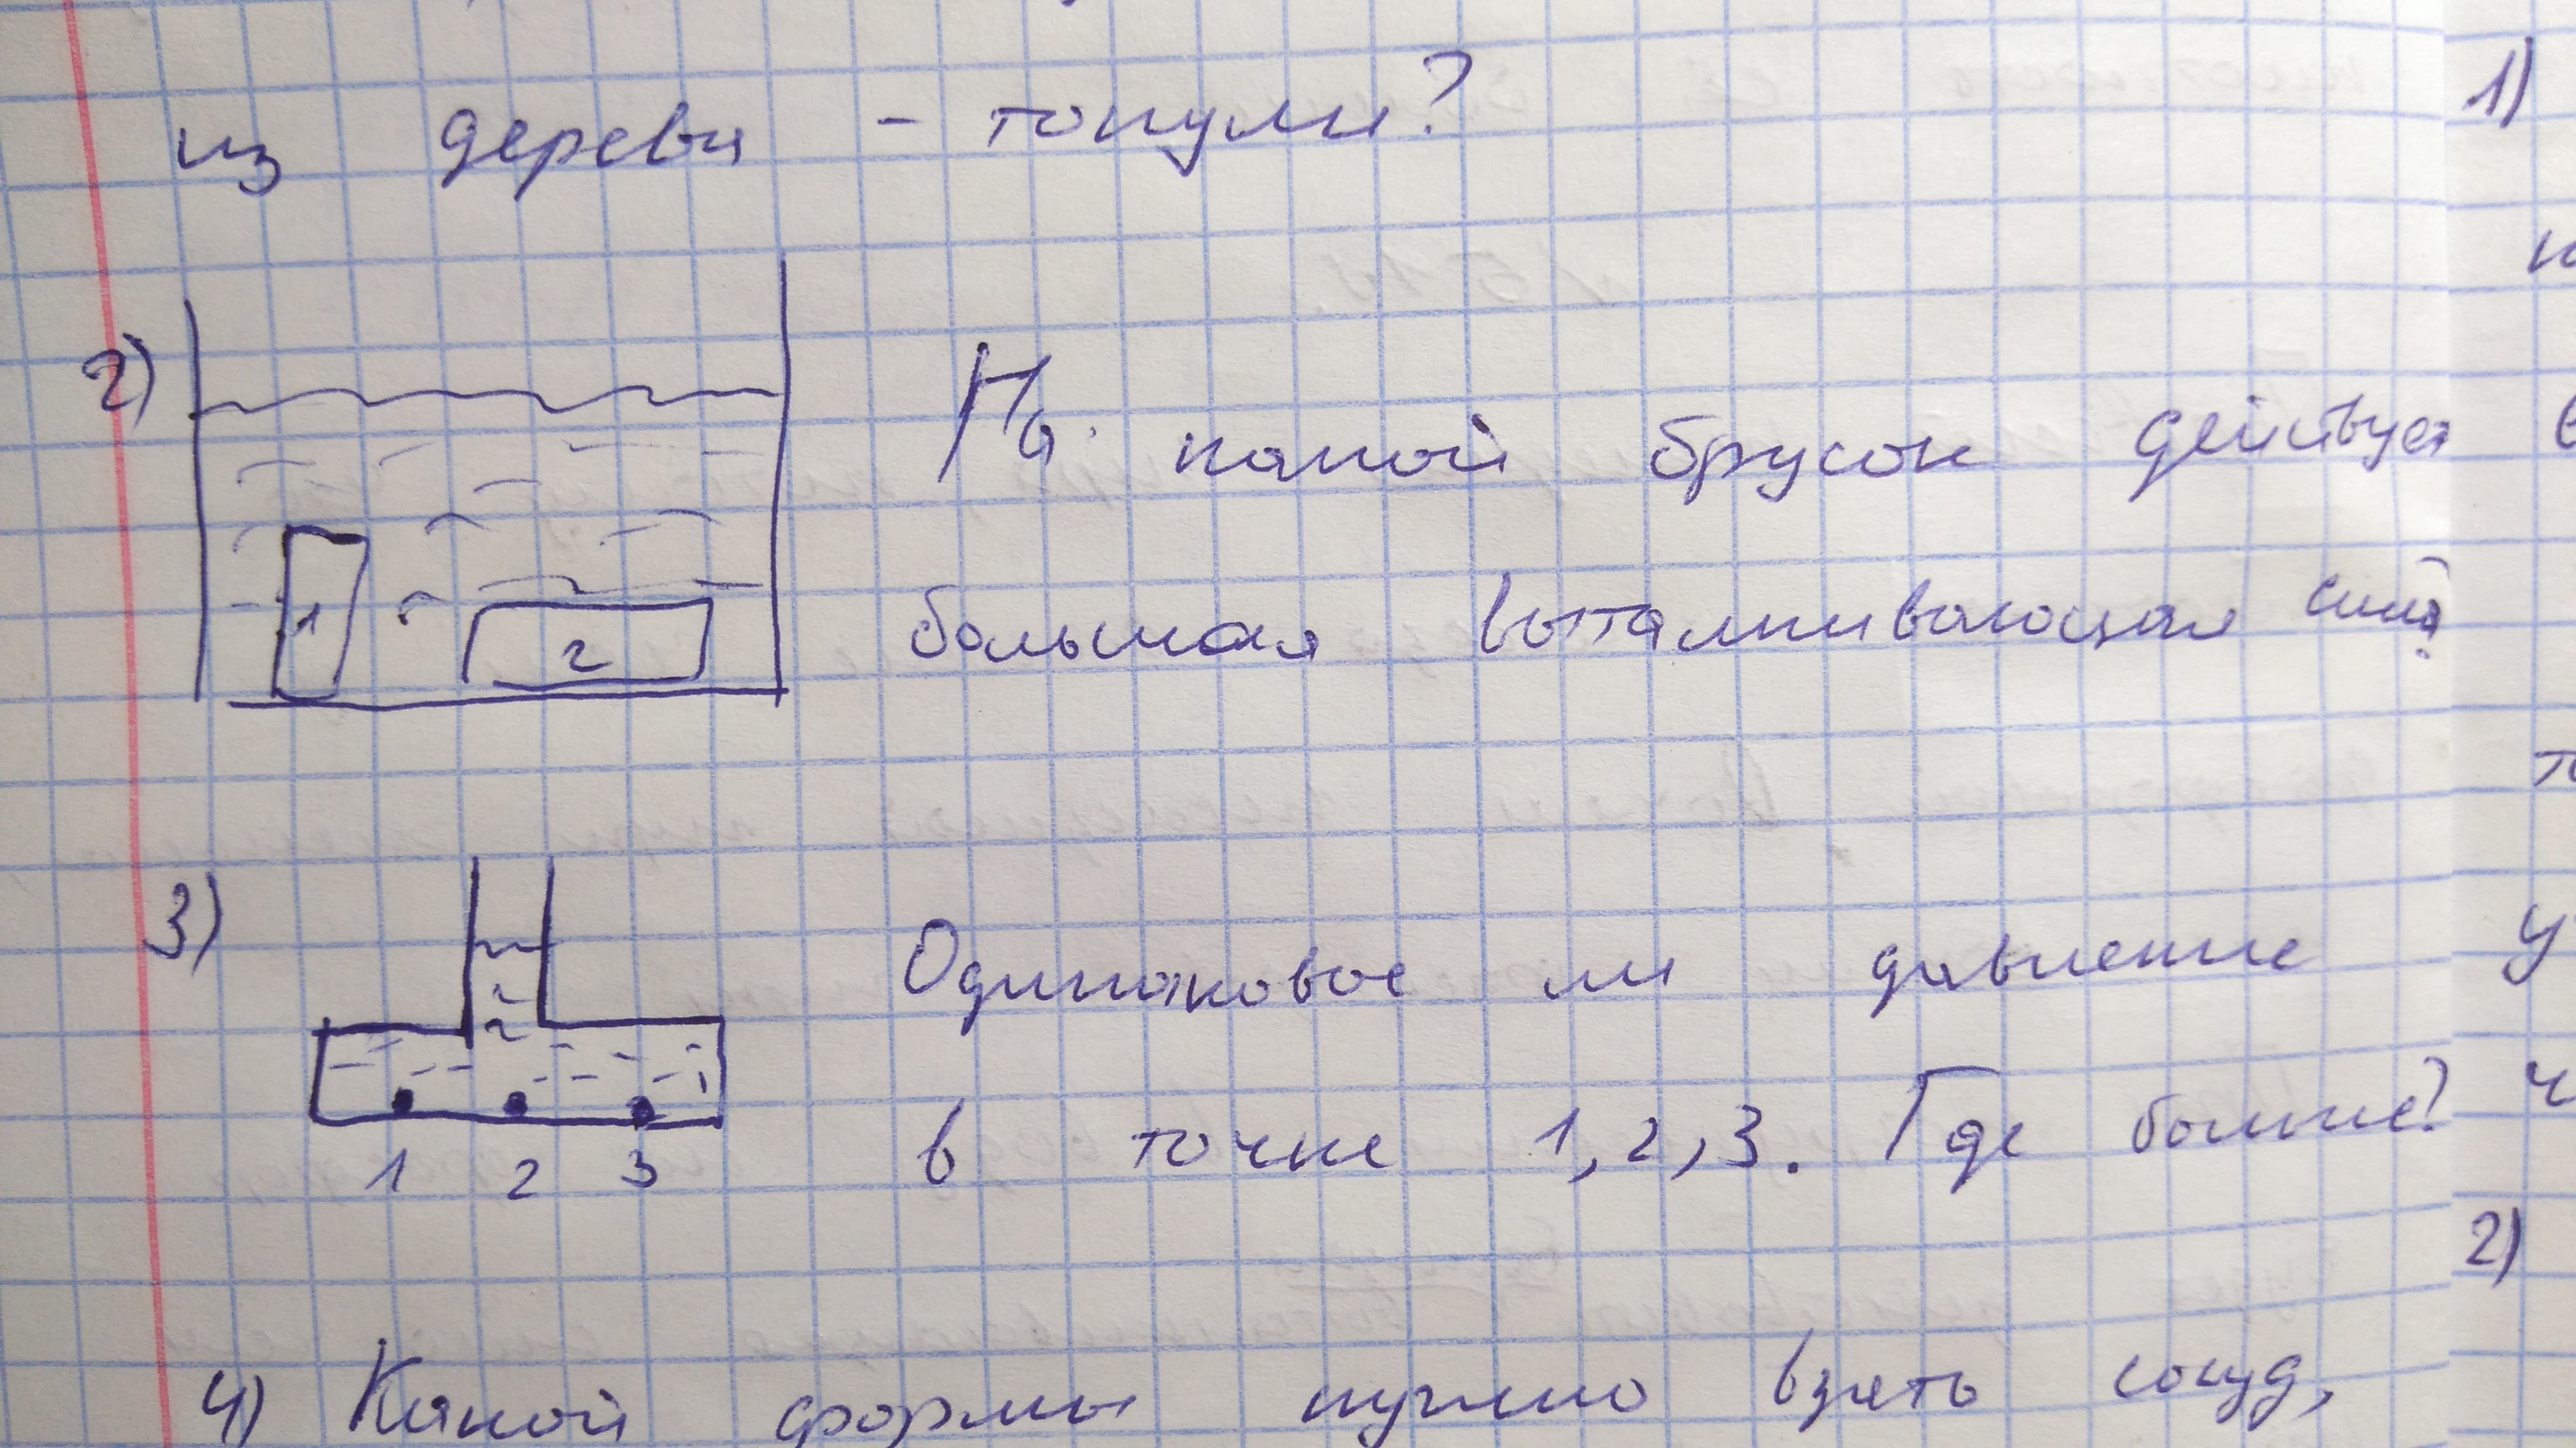 из дерева - тонули?
2)
1
2
На какой брусок действует
большая выталкивающая сила?
3)
1 2 3
Одинаковое ли давление
в точке 1, 2, 3. Где больше?
4) Какой формы нужно взять сосуд,
1)
у
2)